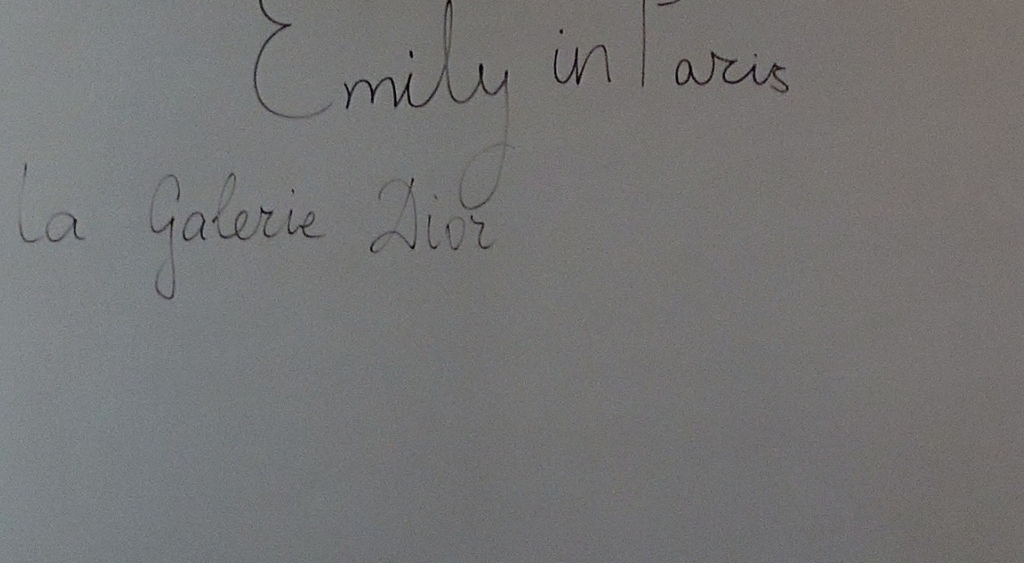 Emily in Paris
La Galerie Dior